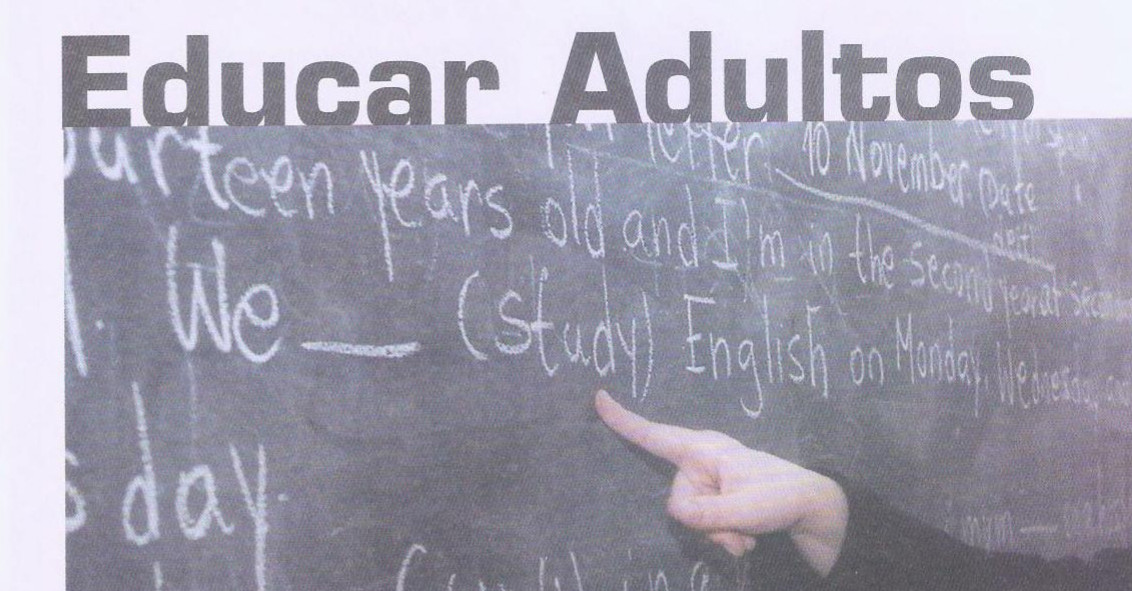 Educar Adultos
letter, 10 November Date
urteen years old and I'm in the second year at sec
1. We __ (study) English on Monday, Wednesday, and
day.